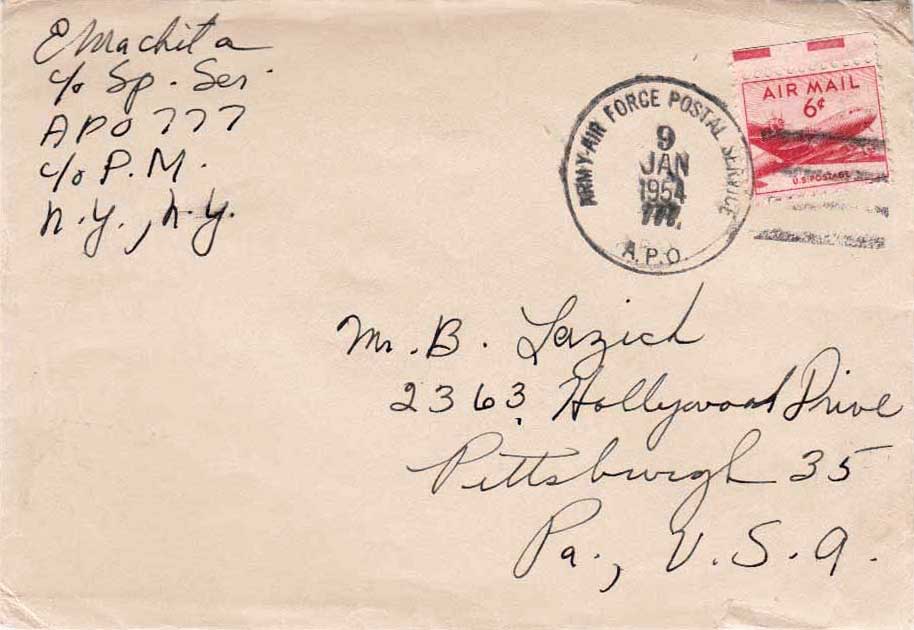 E Machita
c/o Sp. Ser.
APO 777
c/o P.M.
N.Y., N.Y.
ARMY-AIR FORCE POSTAL SERVICE
9
JAN
1954
777.
A.P.O.
AIR MAIL
6¢
U.S. POSTAGE
Mr. B. Lazich
2363 Hollywood Drive
Pittsburgh 35
Pa., U.S.A.